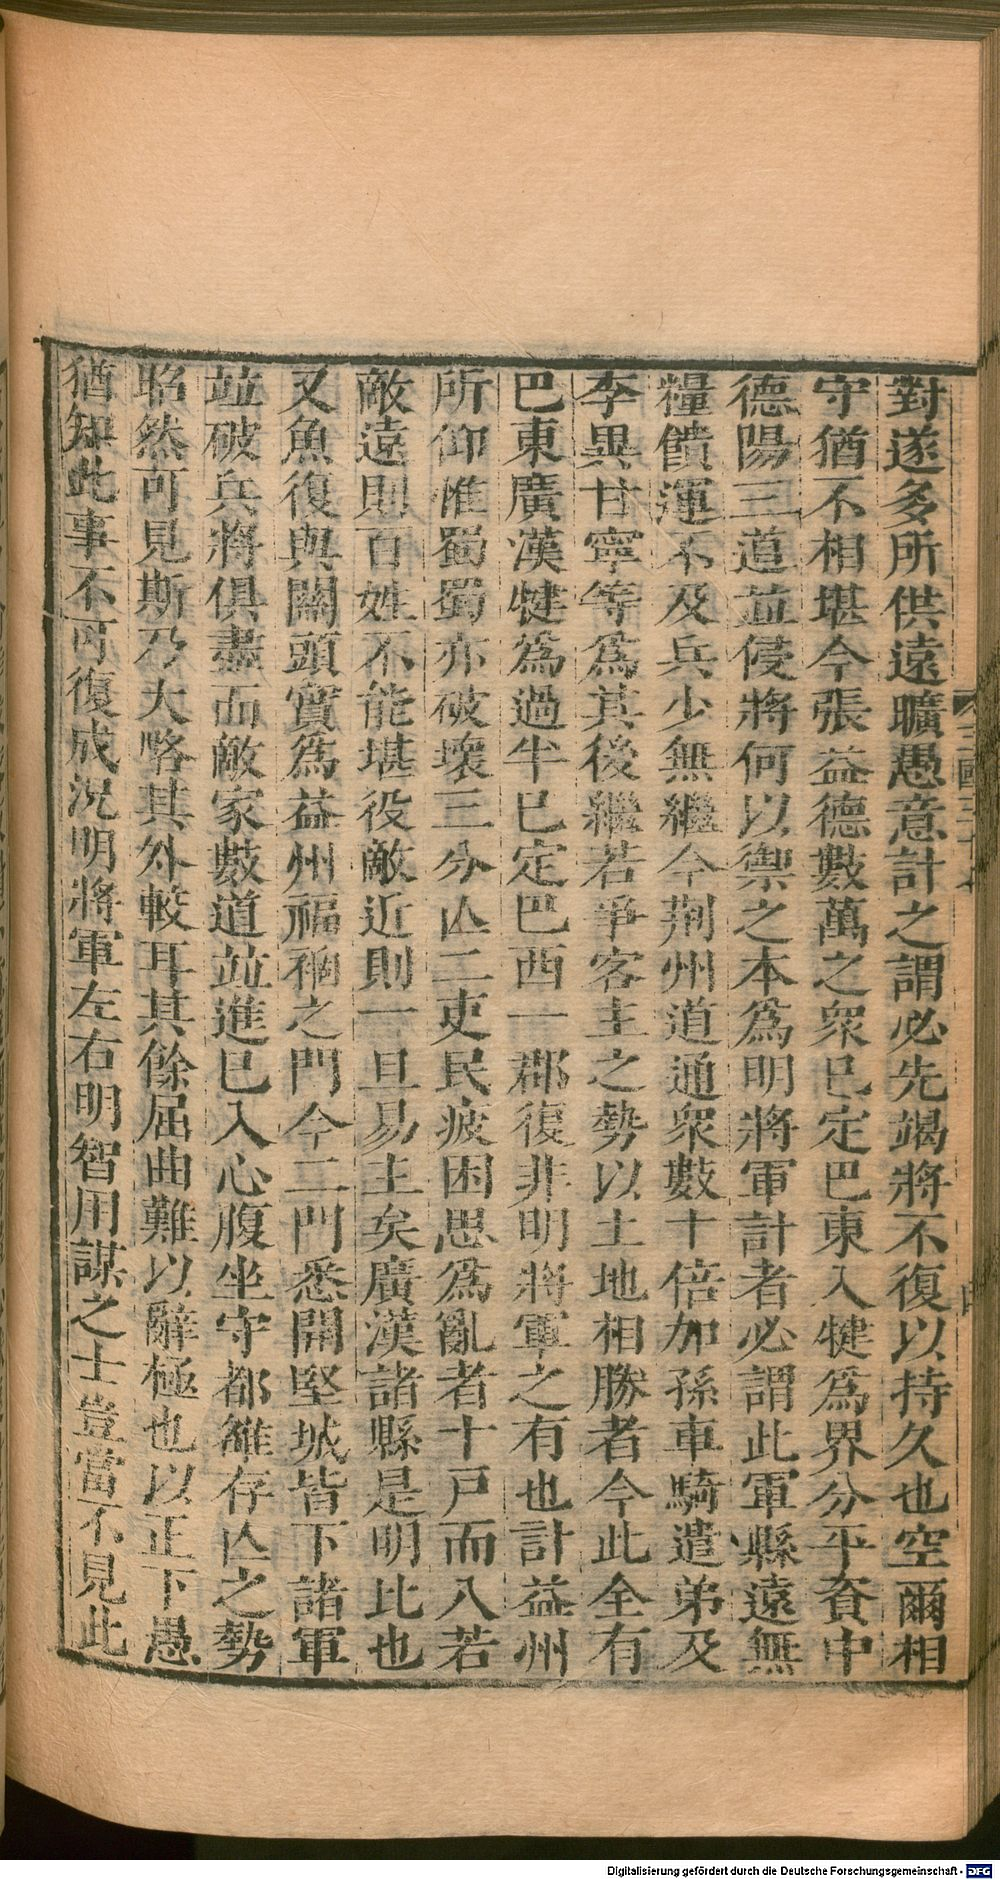 對遂多所供遠曠愚意計之謂必先竭將不復以持久也空爾相
守猶不相堪今張益德數萬之衆已定巴東入犍爲界分平資中
德陽三道並侵將何以禦之本爲明將軍計者必謂此軍縣遠無
糧饋運不及兵少無繼今荆州道通衆數十倍加孫車騎遣弟及
李異甘寧等爲其後繼若爭客主之勢以土地相勝者今此全有
巴東廣漢犍爲過半已定巴西一郡復非明將軍之有也計益州
所仰惟蜀蜀亦破壞三分亾二吏民疲困思爲亂者十戸而八若
敵遠則百姓不能堪役敵近則一旦易主矣廣漢諸縣是明比也
又魚復與關頭實爲益州福禍之門今二門悉開堅城皆下諸軍
並破兵將俱盡而敵家數道並進已入心腹坐守都雒存亾之勢
昭然可見斯乃大略其外較耳其餘屈曲難以辭極也以正下愚
猶知此事不可復成況明將軍左右明智用謀之士豈當不見此
Digitalisierung gefördert durch die Deutsche Forschungsgemeinschaft - DFG